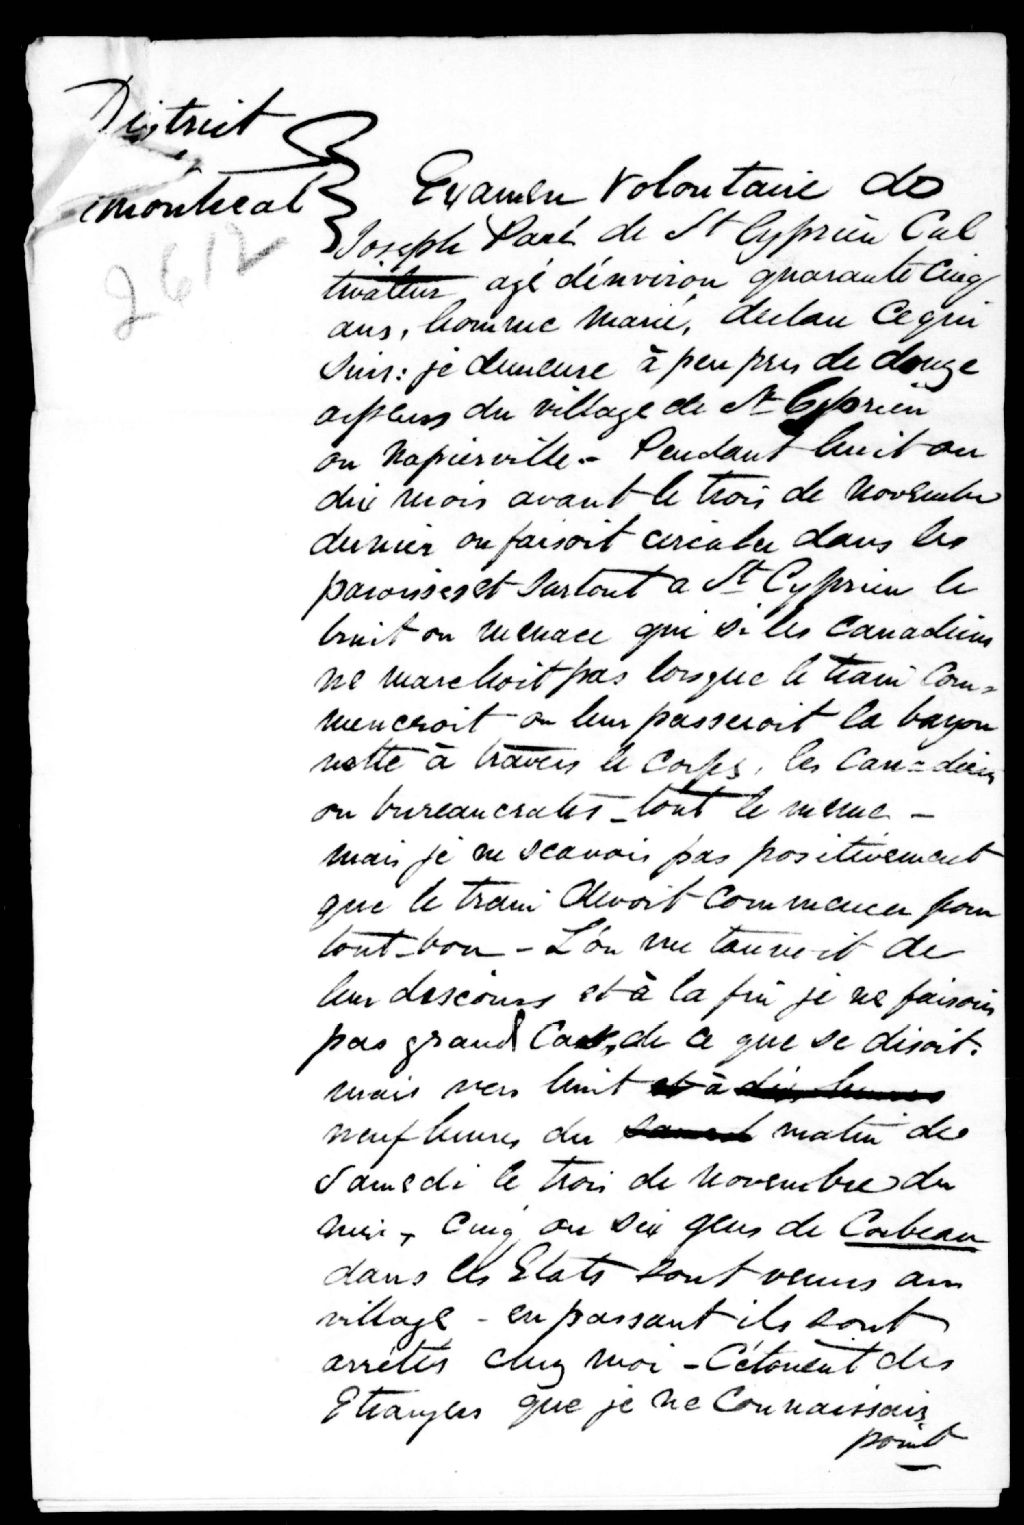 District
de
Montreal
2612
Examen Volontaire de
Joseph Paré de St Cyprien Cul
tivateur agé d'environ quarante cinq
ans, homme marié, declare ce qui
suis: je demeure à peu pres de douze
arpens du village de St Cyprien
ou Napierville - Pendant huit ou
dix mois avant le trois de Novembre
dernier on faisoit circuler dans les
paroisses et surtout a St Cyprien le
bruit ou menace que si les Canadiens
ne marchoit pas lorsque le train com=
menceroit on leur passeroit la bayon
nette à travers le corps, les Canadiens
ou bureaucrates - tout le meme -
mais je ne scavois pas positivement
que le train devoit commencer pour
tout-bon - L'on me tannoit de
leur descours et à la fin je ne faisois
pas grand cas, de ce que se disoit.
mais vers huit et à dix heures
neuf heures du samedi matin de
Samedi le trois de Novembre der
nier, cinq ou six gens de Corbeau
dans les Etats sont venus au
village - en passant ils sont
arrêtés chez moi - C'étoient des
Etrangers que je ne connaissais
point